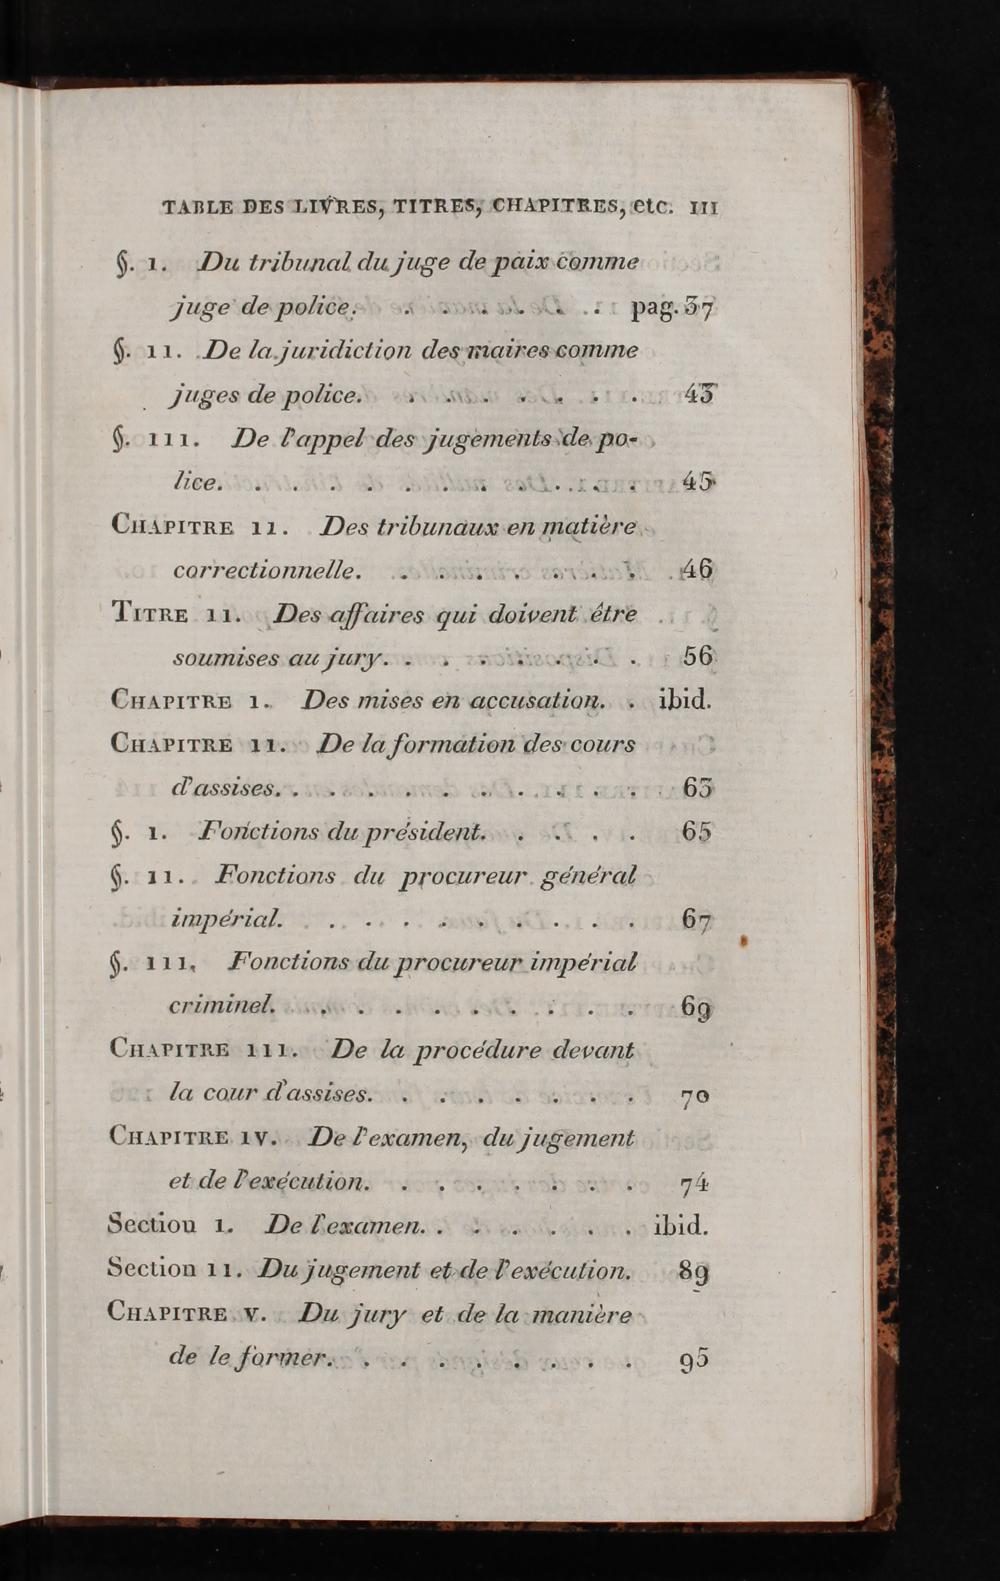 TABLE DES LIVRES, TITRES, CHAPITRES, etc. III
§. I. Du tribunal du juge de paix comme
juge de police. . . . . . . pag. 37
§. II. De la juridiction des maires comme
juges de police. . . . . . . . 43
§. III. De l'appel des jugements de po-
lice. . . . . . . . . . . . 45
CHAPITRE II. Des tribunaux en matière
correctionnelle. . . . . . . . 46
TITRE II. Des affaires qui doivent être
soumises au jury. . . . . . . . 56
CHAPITRE I. Des mises en accusation. . ibid.
CHAPITRE II. De la formation des cours
d'assises. . . . . . . . . . . 63
§. I. Fonctions du président. . . . . 65
§. II. Fonctions du procureur général
impérial. . . . . . . . . . 67
§. III. Fonctions du procureur impérial
criminel. . . . . . . . . . 69
CHAPITRE III. De la procédure devant
la cour d'assises. . . . . . . . 70
CHAPITRE IV. De l'examen, du jugement
et de l'exécution. . . . . . . . 74
Section I. De l'examen. . . . . . . ibid.
Section II. Du jugement et de l'exécution. 89
CHAPITRE V. Du jury et de la manière
de le former. . . . . . . . . 95